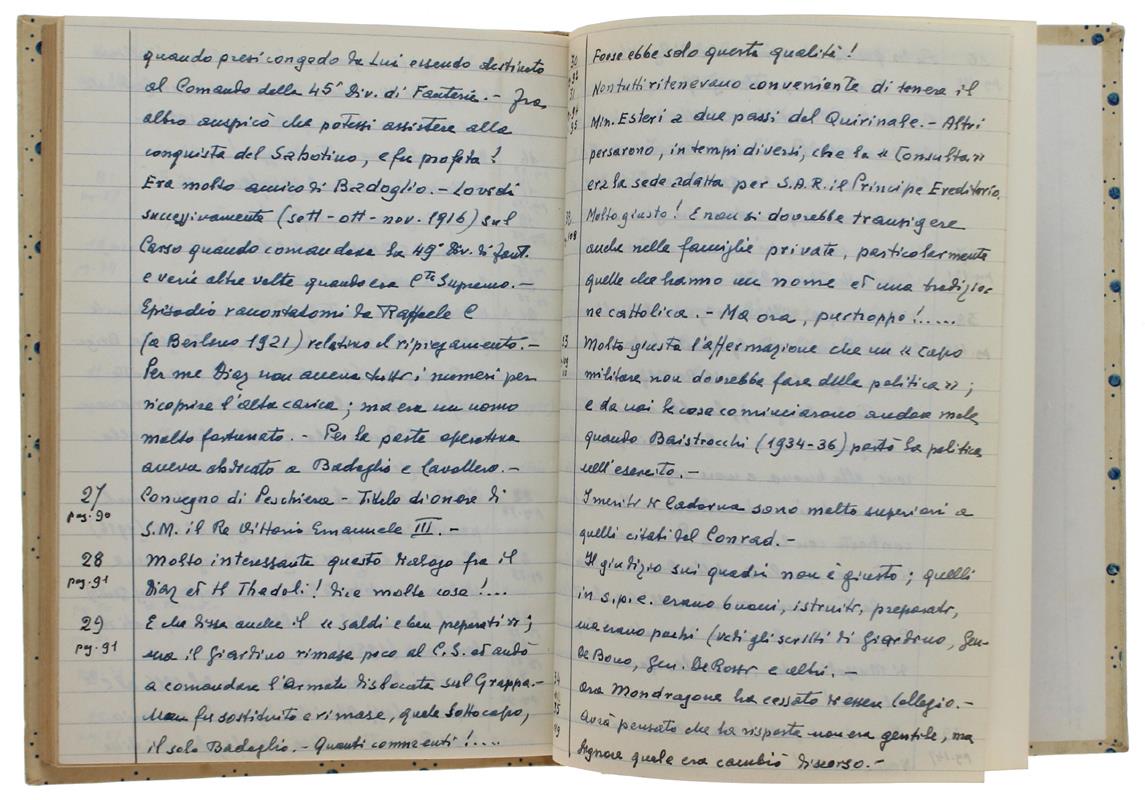 quando presi congedo da Lui essendo destinato
al Comando della 45ª Div. di Fanteria. - Fra
altro auspicò che potessi assistere alla
conquista del Sabotino, e fu profeta!
Era molto amico di Badoglio. - Lo vidi
successivamente (sett - ott - nov. 1916) sul
Carso quando comandava la 49ª Div. di fant.
e varie altre volte quando era Cte Supremo. -
Episodio raccontatomi da Raffaele C
(a Berlino 1921) relativo al ripiegamento. -
Per me Diaz non aveva tutti i numeri per
ricoprire l'alta carica; ma era un uomo
molto fortunato. - Per la parte operativa
aveva abdicato a Badoglio e Cavallero. -
27 Convegno di Peschiera - Titolo di onore di
pag. 90 S.M. il Re Vittorio Emanuele III. -
28 Molto interessante questo dialogo fra il
pag. 91 Diaz ed il Thadoli! Dice molte cose!...
29 E che dissa anche il « saldi e ben preparati »;
pag. 91 ma il Giardino rimase poco al C.S. ed andò
a comandare l'Armata dislocata sul Grappa. -
Ma fu sostituito e rimase, quale Sottocapo,
il solo Badoglio. - Quanti commenti!....
Forse ebbe solo questa qualità!
Non tutti ritenevano conveniente di tenere il
Min. Esteri a due passi dal Quirinale. - Altri
pensarono, in tempi diversi, che la « Consulta »
era la sede adatta per S.A.R. il Principe Ereditario.
Molto giusto! E non si dovrebbe transigere
anche nelle famiglie private, particolarmente
quelle che hanno un nome ed una tradizio-
ne cattolica. - Ma ora, purtroppo!.....
Molto giusta l'affermazione che un « capo
militare non dovrebbe fare della politica »;
e da noi le cose cominciarono andar male
quando Baistrocchi (1934-36) portò la politica
nell'esercito. -
I meriti di Cadorna sono molto superiori a
quelli citati dal Conrad. -
Il giudizio sui quadri non è giusto; quelli
in s.p.e. erano buoni, istruiti, preparati,
ma erano pochi (vedi gli scritti di Giardino, Gen.
De Bono, Gen. De Rossi e altri. -
Ora Mondragone ha cessato di essere Collegio. -
Avrà pensato che la risposta non era gentile, ma
Signore quale era cambiò discorso. -